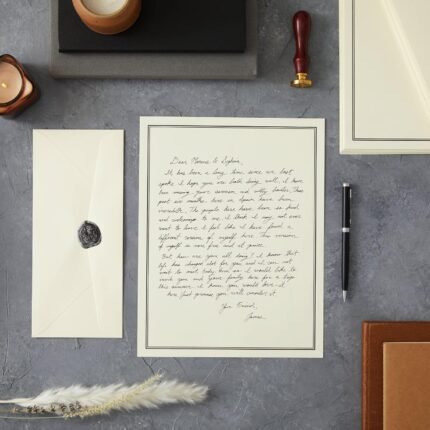 Dear Marcus & Sylvia,
It has been a long time since we last
spoke. I hope you are both doing well. I have
been missing your and witty banter. These
past six months here in Spain have been
incredible. The people here have been so kind
and welcoming to me I think I may not ever
want to leave. I feel like I have found a
different version of myself here. This version
of myself is more free and at peace.
But how are you all doing? I know that
life has changed alot for you and it can not
want to wait today, but so I would like to
invite you and your family here for a trip
this summer. I know you would love it
here. Just promise you will consider it.
Your Friend,
James